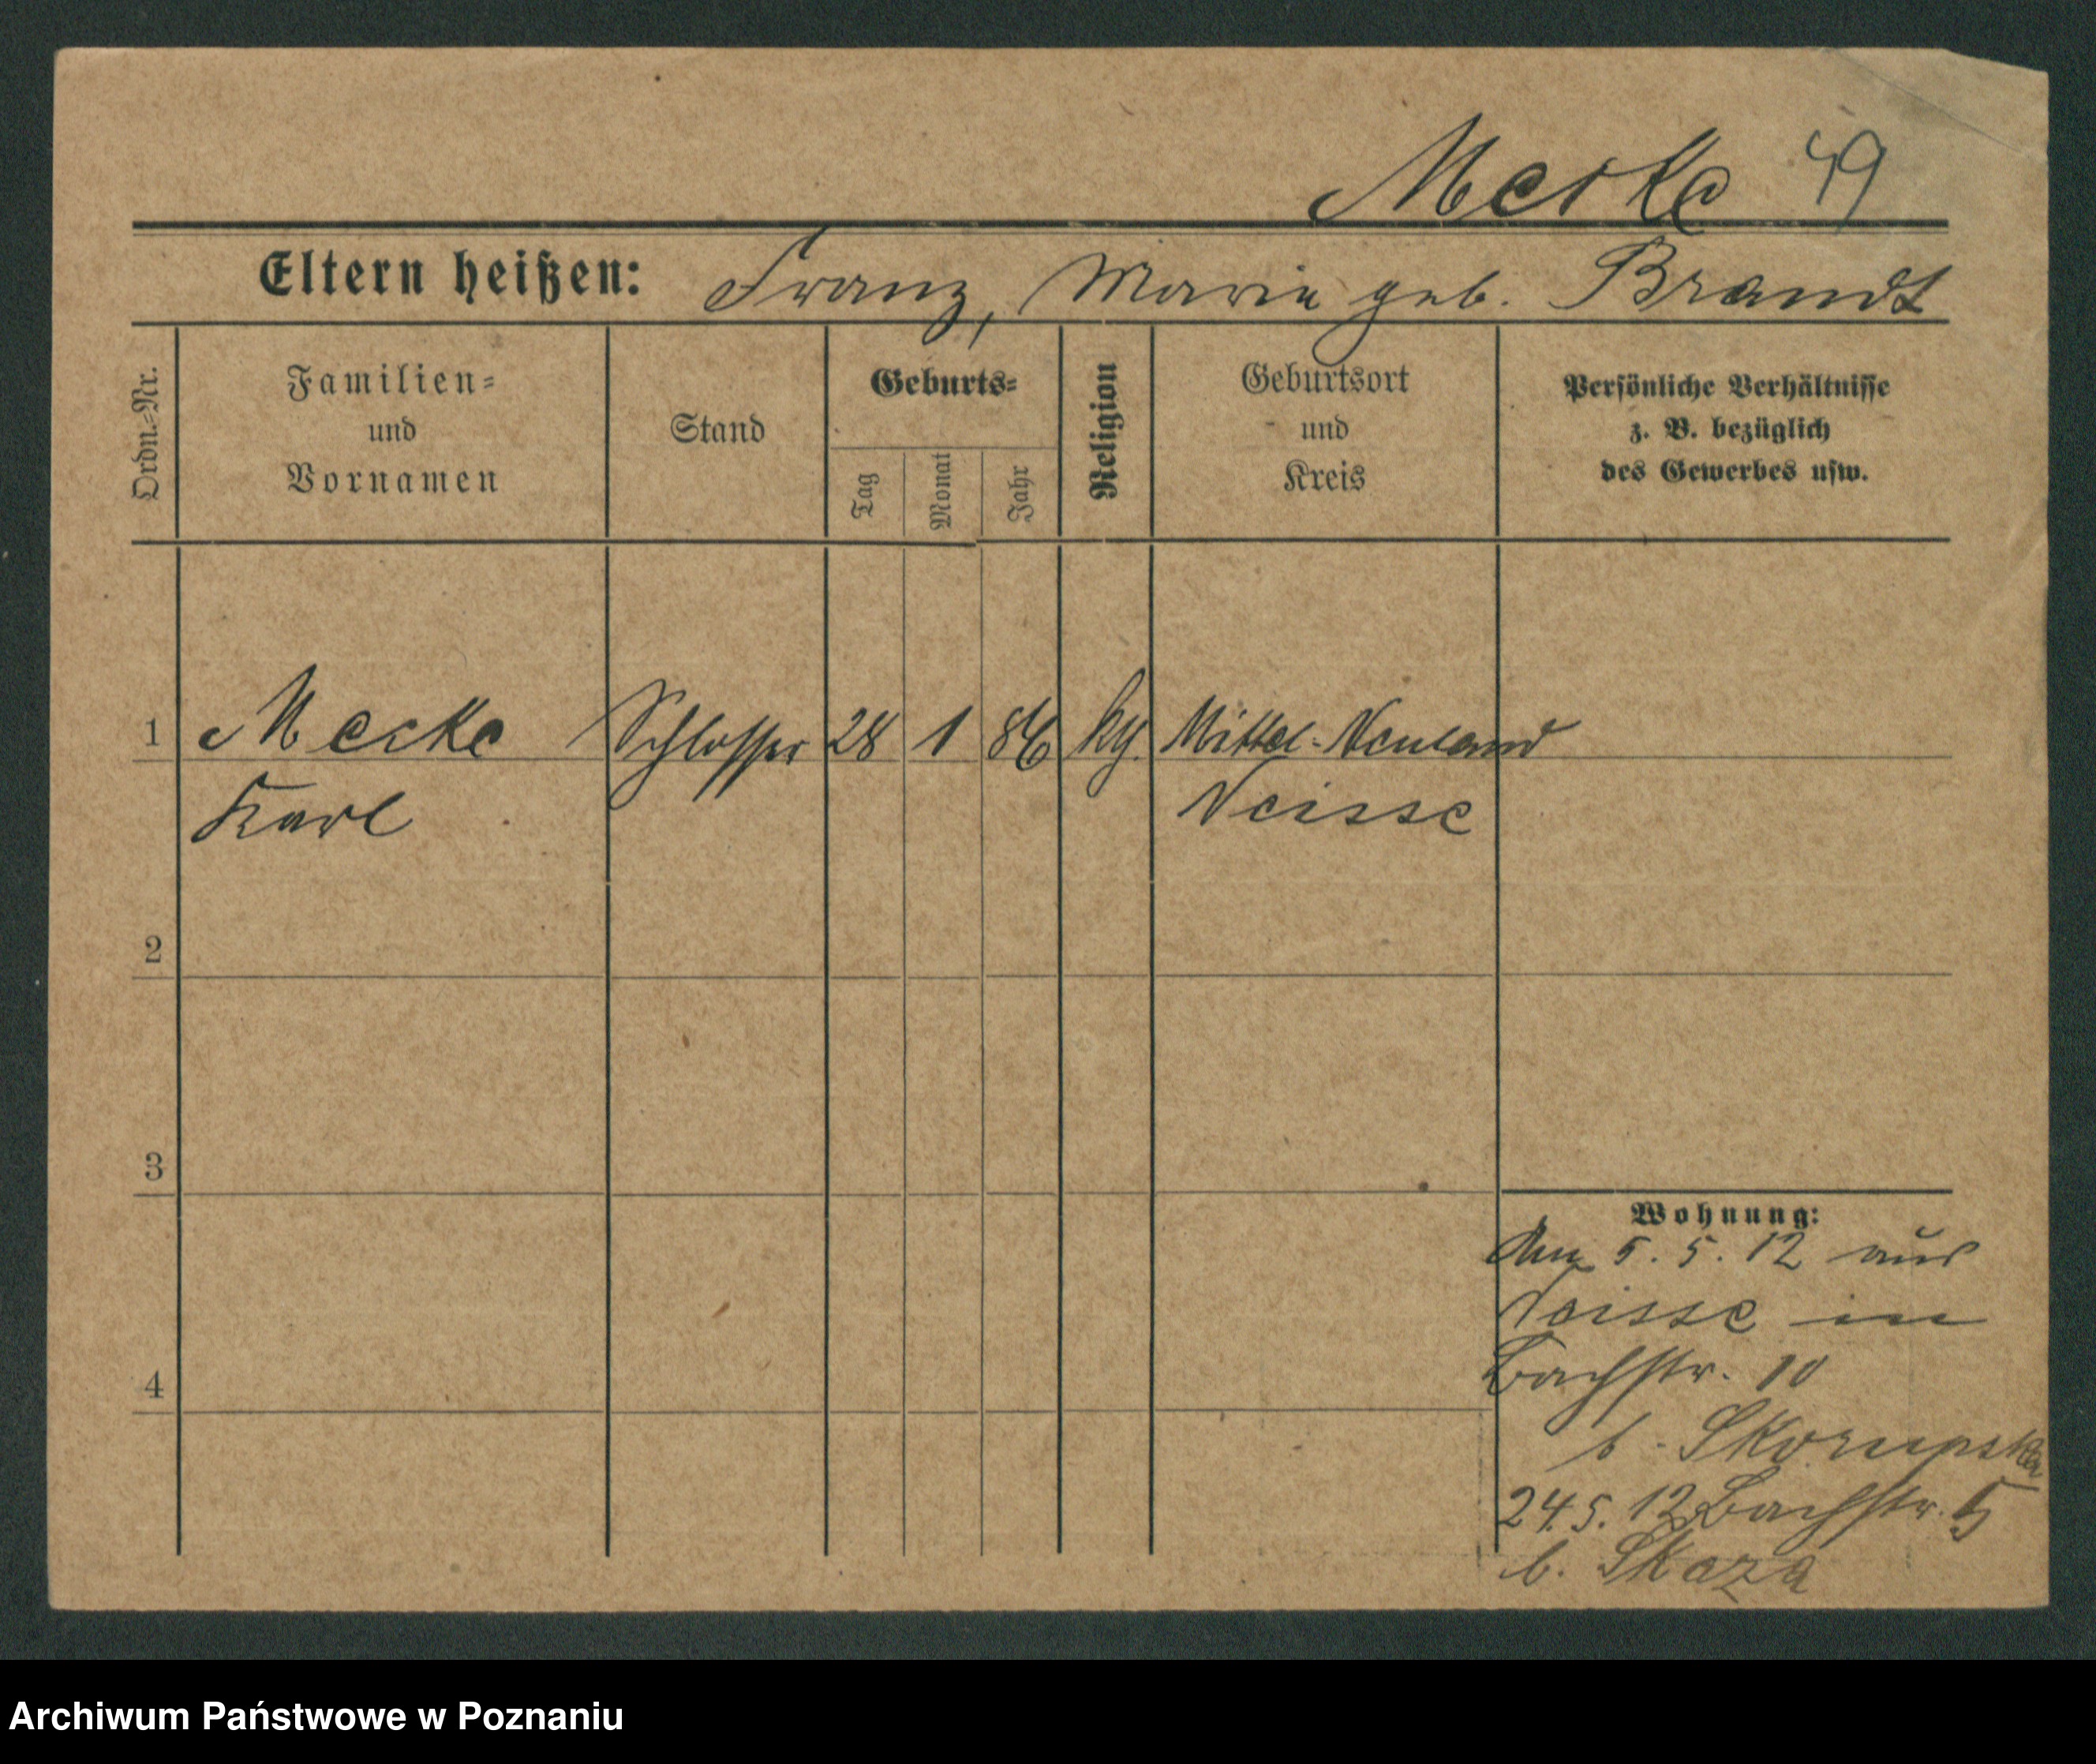 Merke 49
Eltern heißen: Franz, Marie geb. Brandt
Ordn.=Nr.
Familien=
und
Vornamen
Stand
Geburts=
Tag
Monat
Jahr
Religion
Geburtsort
und
Kreis
Persönliche Verhältnisse
z. B. bezüglich
des Gewerbes usw.
1 Merke Schlosser 28 1 86 kg. Mittel-Neuland
Karl Neisse
2
3
4
Wohnung:
Am 5. 5. 12 aus
Neisse in
Bachstr. 10
b. Skorupska
24.5.12 Bachstr. 5
b. Skaza
Archiwum Państwowe w Poznaniu